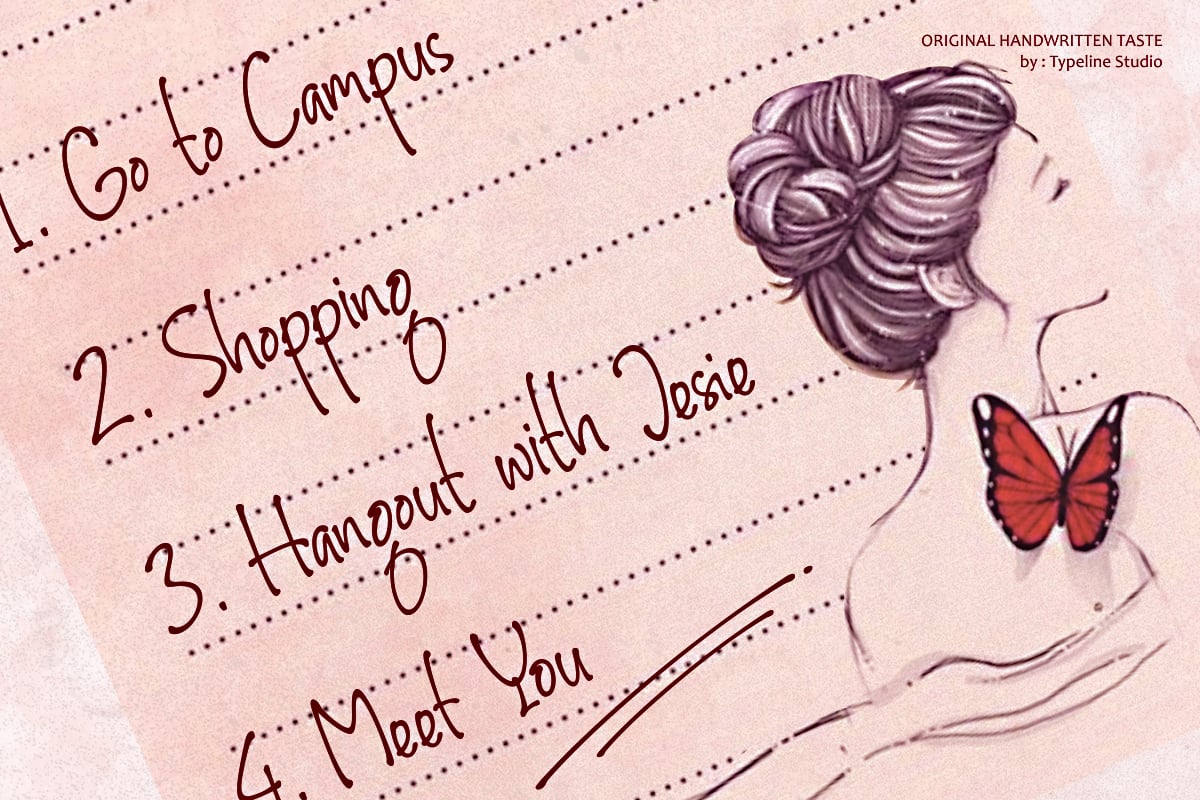 ORIGINAL HANDWRITTEN TASTE
by : Typeline Studio
1. Go to Campus
2. Shopping
3. Hangout with Jesie
4. Meet You